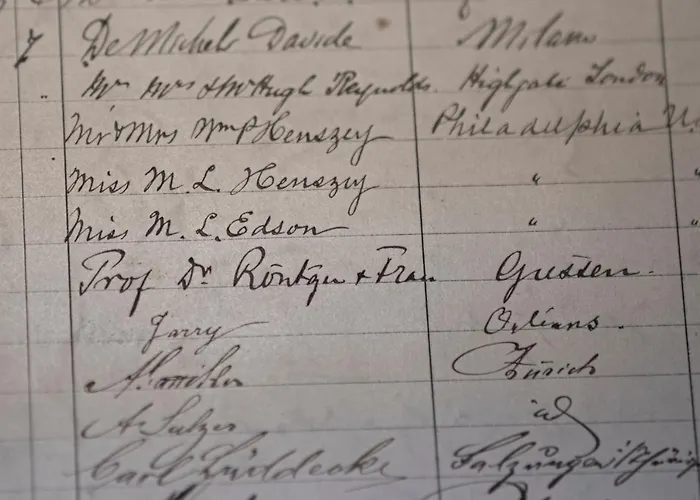 7 De Michel Davide Milano
" Mr Mrs & Mr Hugh Reynolds. Highgate London
Mr & Mrs Wm P Henszey Philadelphia
Miss M. L. Henszey "
Miss M. L. Edson " "
Prof Dr Röntgen & Frau Giessen.
Jarry Orléans.
Zürich
A Sulzer id
Carl Lüddecke Salzungen